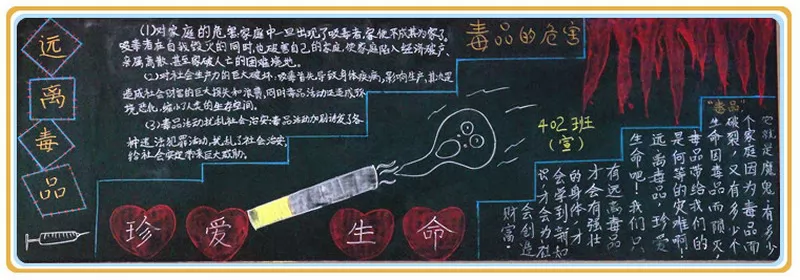 远
离
毒
品
(1)对家庭的危害家庭中一旦出现了吸毒者,家便不成其为家了。
吸毒者在自我毁灭的同时,也破害自己的家庭,使家庭陷入经济破产、
亲属离散、甚至家破人亡的困难境地。
(2)对社会生产力的巨大破坏:吸毒首先导致身体疾病,影响生产,其次是
造成社会财富的巨大损失和浪费,同时毒品活动还造成环
境恶化,缩小了人类的生存空间。
(3)毒品活动扰乱社会治安:毒品活动加剧诱发了各
种违法犯罪活动,扰乱了社会治安,
给社会安定带来巨大威胁。
毒品的危害
402班
(宣)
珍 爱 生 命
"毒品"
它就是魔鬼,有多少
个家庭因为毒品而
破裂,又有多少个
生命因毒品而陨灭,
毒品带给我们的
是何等的灾难啊!
远离毒品,珍爱
生命吧!我们只
有远离毒品
才会有强壮
的身体,才
会学到新知
识,才会为社
会创造
财富。